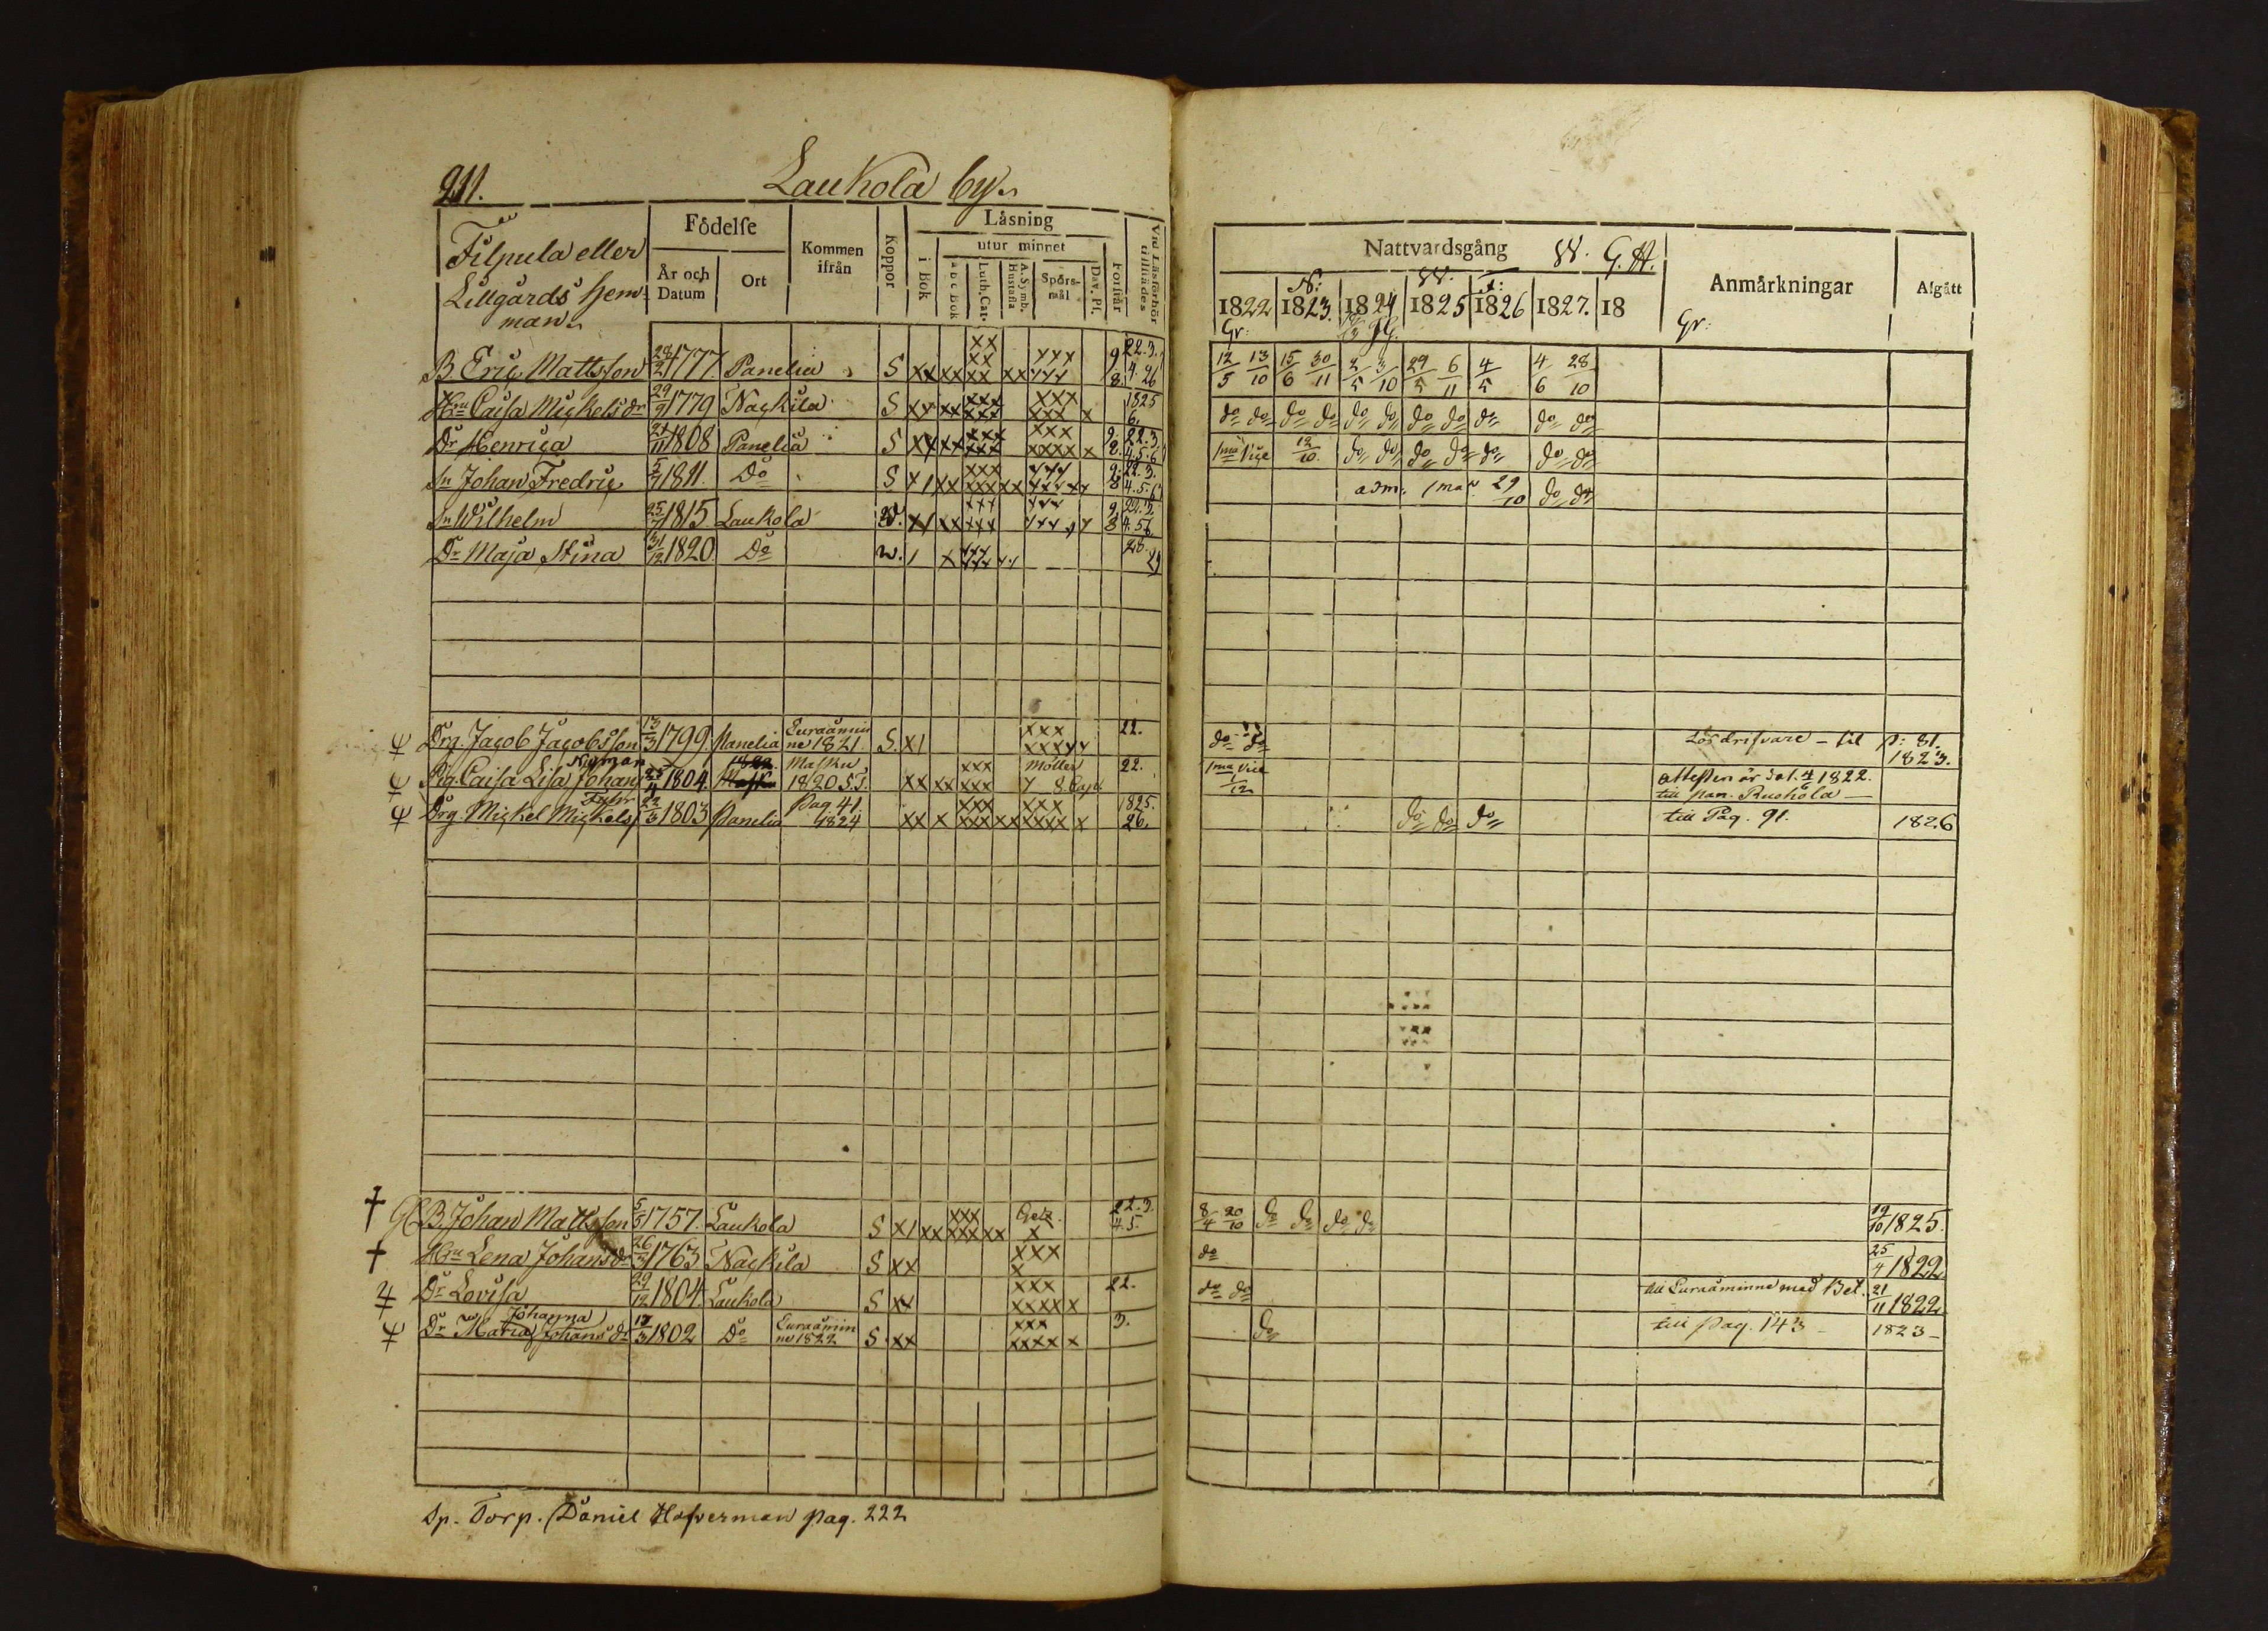 211. Laukola by.
Filpula eller
Lillgårds hem-
man.
Födelse
År och Datum
Ort
Kommen ifrån
Koppor
Läsning
i Bok
utur minnet
a b c Bok
Luth. Cat.
A. Symb. Hustafla
Spörs-mål
Dav. Ps.
Förstår
Vid Läsförhör tillstädes
Nattvardsgång W. G. H.
N: W. A:
1822 1823. 1824 1825 1826 1827. 18
Anmärkningar
Afgått
Gr: Gr:
B. Eric Mattsson 28/2 1777 Panelia S xx xx xx xx xx xx xxx xxx 9/8. 22.3. 4.26 12/5 13/10 15/6 30/11 2/5 3/10 29/5 6/11 4/5 4/6 28/10
Hru Caisa Mickelsdr 29/9 1779 Nackila S xx xx xxx xxx xxx xxx x 1825 6. do do do do do do do do do do do
Dr Henrica 21/11 1808 Panelia S xx xx xxx xxx xxx xxxx x 9/8. 22.3. 4.5.6 1ma Vice 12/10. do do do do do do do
Sn Johan Fredric 5/7 1811. Do S x1 xx xxx xxx xx xxx 9/8 22.3. 4.5.6 adm. 1ma 29/10 do do
Sn Wilhelm 25/7 1815 Laukola W. x1 xx xxx xxx xxx xxx 9/8 22.3. 4.56.
Dr Maja Stina 31/12 1820 Do w. 1 x xxx
Drg Jacob Jacobsson 13/3 1799. Panelia Euraåmin
ne 1821. S. x1 xxx xxxxx 22. do do Lösdrifvare - til p: 81. 1823.
Nyman
Pig. Caisa Lisa Johans 25/4 1804. Masku
1820 S.J. xx xx xxx xxx 22. 1ma Vice 1/12 attesten är dat. 4 1822.
till pan. Ruohola
Drg Mickel Mickelss 22/3 1803 Panelia Pag. 41.
1824 xx x xxx xxx xx xxx xxxx x 1825. 26. do do do till Pag. 91. 1826
B. Johan Mattsson 5/5 1757. Laukola S x1 xx xxx xxx xx x 22.3. 4.5. 8/4 20/10 do do do do 19/10 1825.
Hru Lena Johansdr 26/2 1763 Nackila S xx xxx x do 25/4 1822
Dr Lovisa 29/12 1804. Laukola S xx xxx xxxxx 22. do do till Euraåminne med Bet. 21/11 1822
Johanna
Dr Maria Johansdr 17/3 1802 Do Euraåmin
ne 1822 S xx xxx xxxx x 3. do till Pag. 143 1823
Sp. Torp. Daniel Hafverman pag. 222